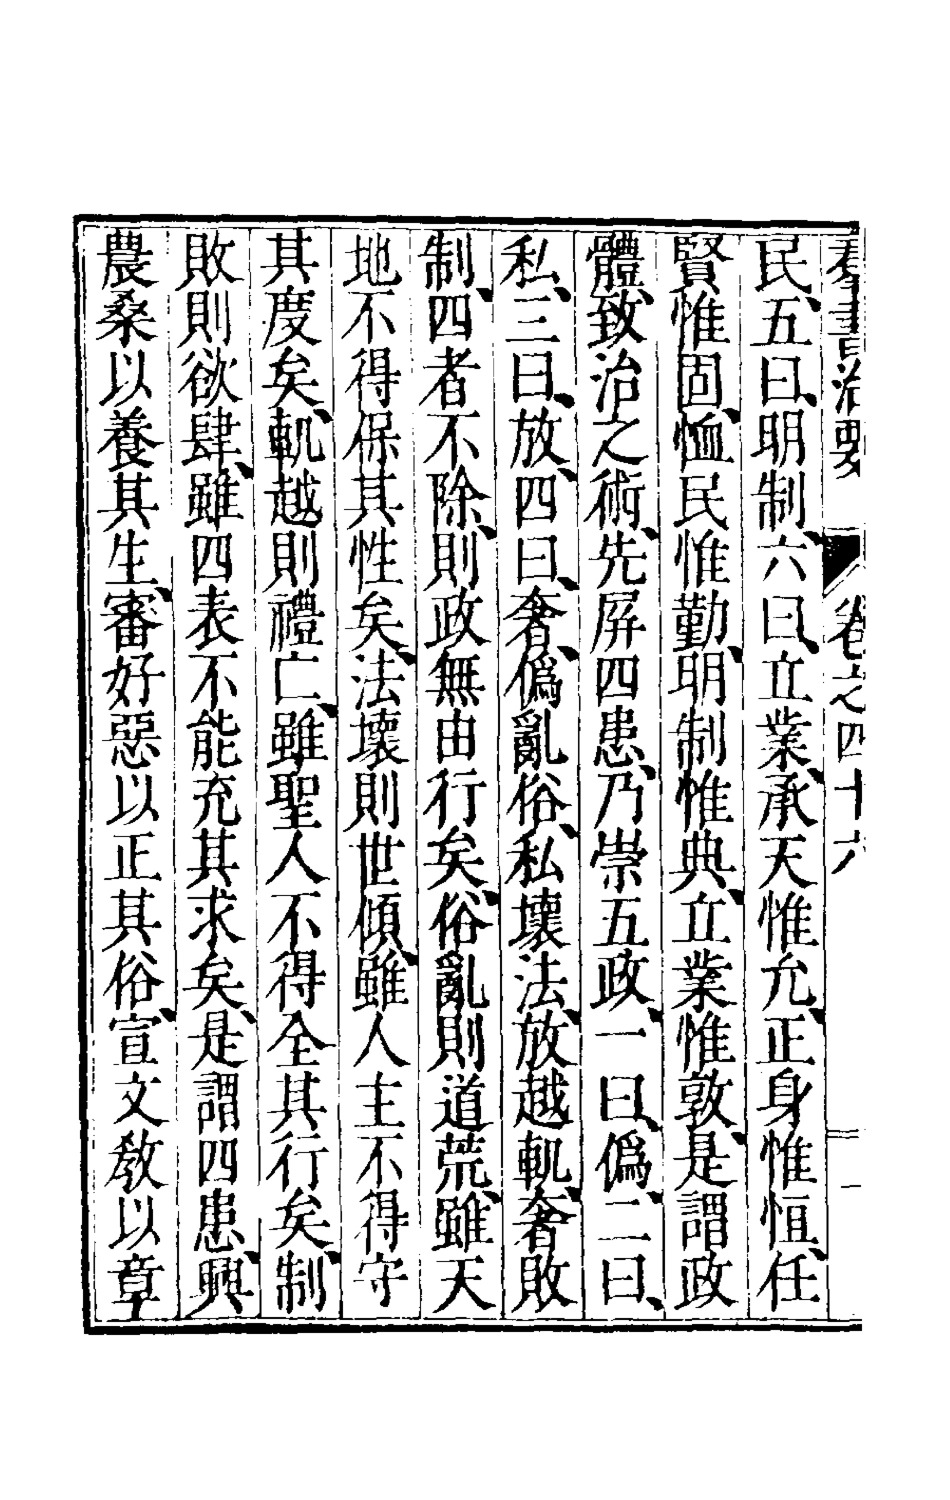 羣書治要 卷之四十六 一
民、五曰、明制、六曰、立業、承天惟允、正身惟恒、任
賢惟固、恤民惟勤、明制惟典、立業惟敦、是謂政
體、致治之術、先屏四患、乃崇五政、一曰、僞、二曰、
私、三曰、放、四曰、奢、僞亂俗、私壞法、放越軌、奢敗
制、四者不除、則政無由行矣、俗亂則道荒、雖天
地不得保其性矣、法壞則世傾、雖人主不得守
其度矣、軌越則禮亡、雖聖人不得全其行矣、制
敗則欲肆、雖四表不能充其求矣、是謂四患、興
農桑以養其生、審好惡以正其俗、宣文敎以章